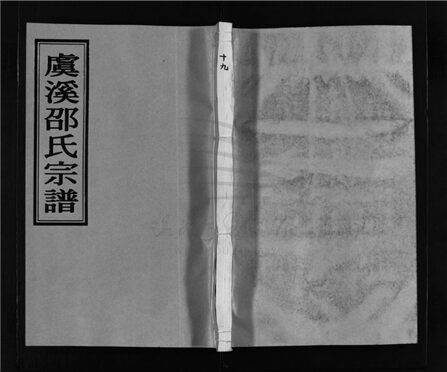 虞溪邵氏宗譜
十九